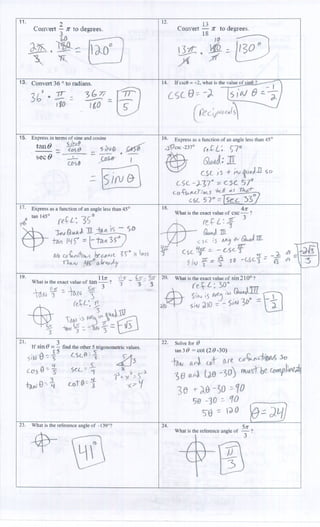 11.
Convert 2/3 π to degrees.
120°
12.
Convert 13/18 π to degrees.
130°
13. Convert 36 ° to radians.
36° · π/180 = 36π/180 = π/5
14. If cscθ = -2, what is the value of sinθ ?
csc θ = -2
sin θ = -1/2
(reciprocals)
15. Express in terms of sine and cosine
tan θ / sec θ
= sin θ
16. Express as a function of an angle less than 45°
csc -237°
ref ∠: 57°
Quad: II
csc is + in quad II so
csc -237° = csc 57°
csc 57° = sec 33°
17. Express as a function of an angle less than 45°
tan 145°
ref ∠: 35°
In Quad II tan is - so
tan 145° = -tan 35°
no cofunction because 35° is less than 45° already
18.
What is the exact value of csc 4π/3 ?
ref ∠: π/3
Quad III
csc is neg in Quad III
19.
What is the exact value of tan 11π/3
ref ∠: π/3
Tan is neg in Quad IV
= -√3
20. What is the exact value of sin 210° ?
ref ∠: 30°
Sin is neg in Quad III
sin 210 = - sin 30° = -1/2
21.
If sin θ = 3/5 find the other 5 trigonometric values.
sin θ = 3/5 csc θ = 5/3
cos θ = 4/5 sec = 5/4
tan θ = 3/4 cot θ = 4/3
3² + x² = 5²
x = 4
22. Solve for θ
tan 3θ = cot (2θ -30)
tan and cot are cofunctions so
3θ and (2θ -30) must be complements
3θ + 2θ -30 = 90
5θ -30 = 90
5θ = 120
θ = 24
23. What is the reference angle of -139°?
41°
24.
What is the reference angle of 5π/3 ?
π/3